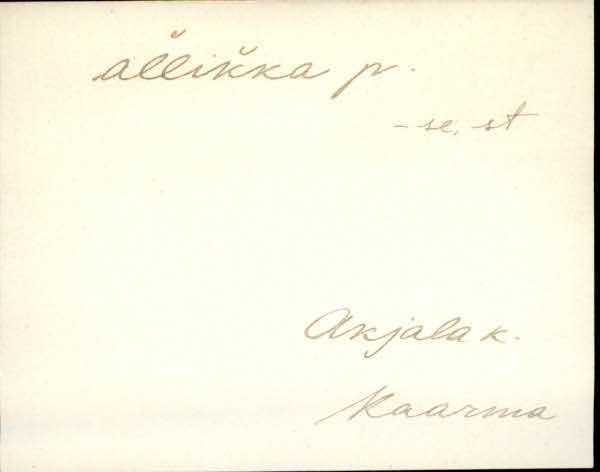 al̆lik̆ka p.
-se, st
Akjala k.
Kaarma